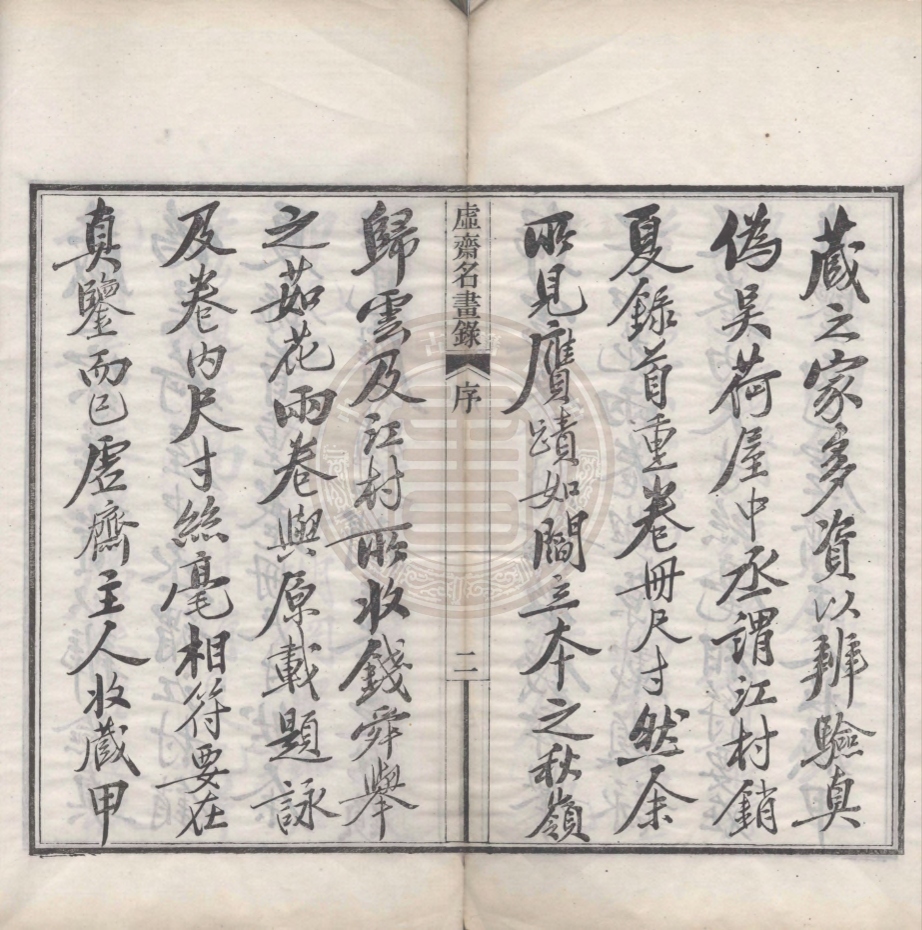 藏之家多資以辨驗真
偽吳荷屋中丞謂江村銷
夏錄首重卷冊尺寸然余
所見贋蹟如閻立本之秋嶺
虛齋名畫錄 序 二
歸雲及江村所收錢舜舉
之茹花兩卷與原載題詠
及卷內尺寸絲毫相符要在
真鑒而已虛齋主人收藏甲